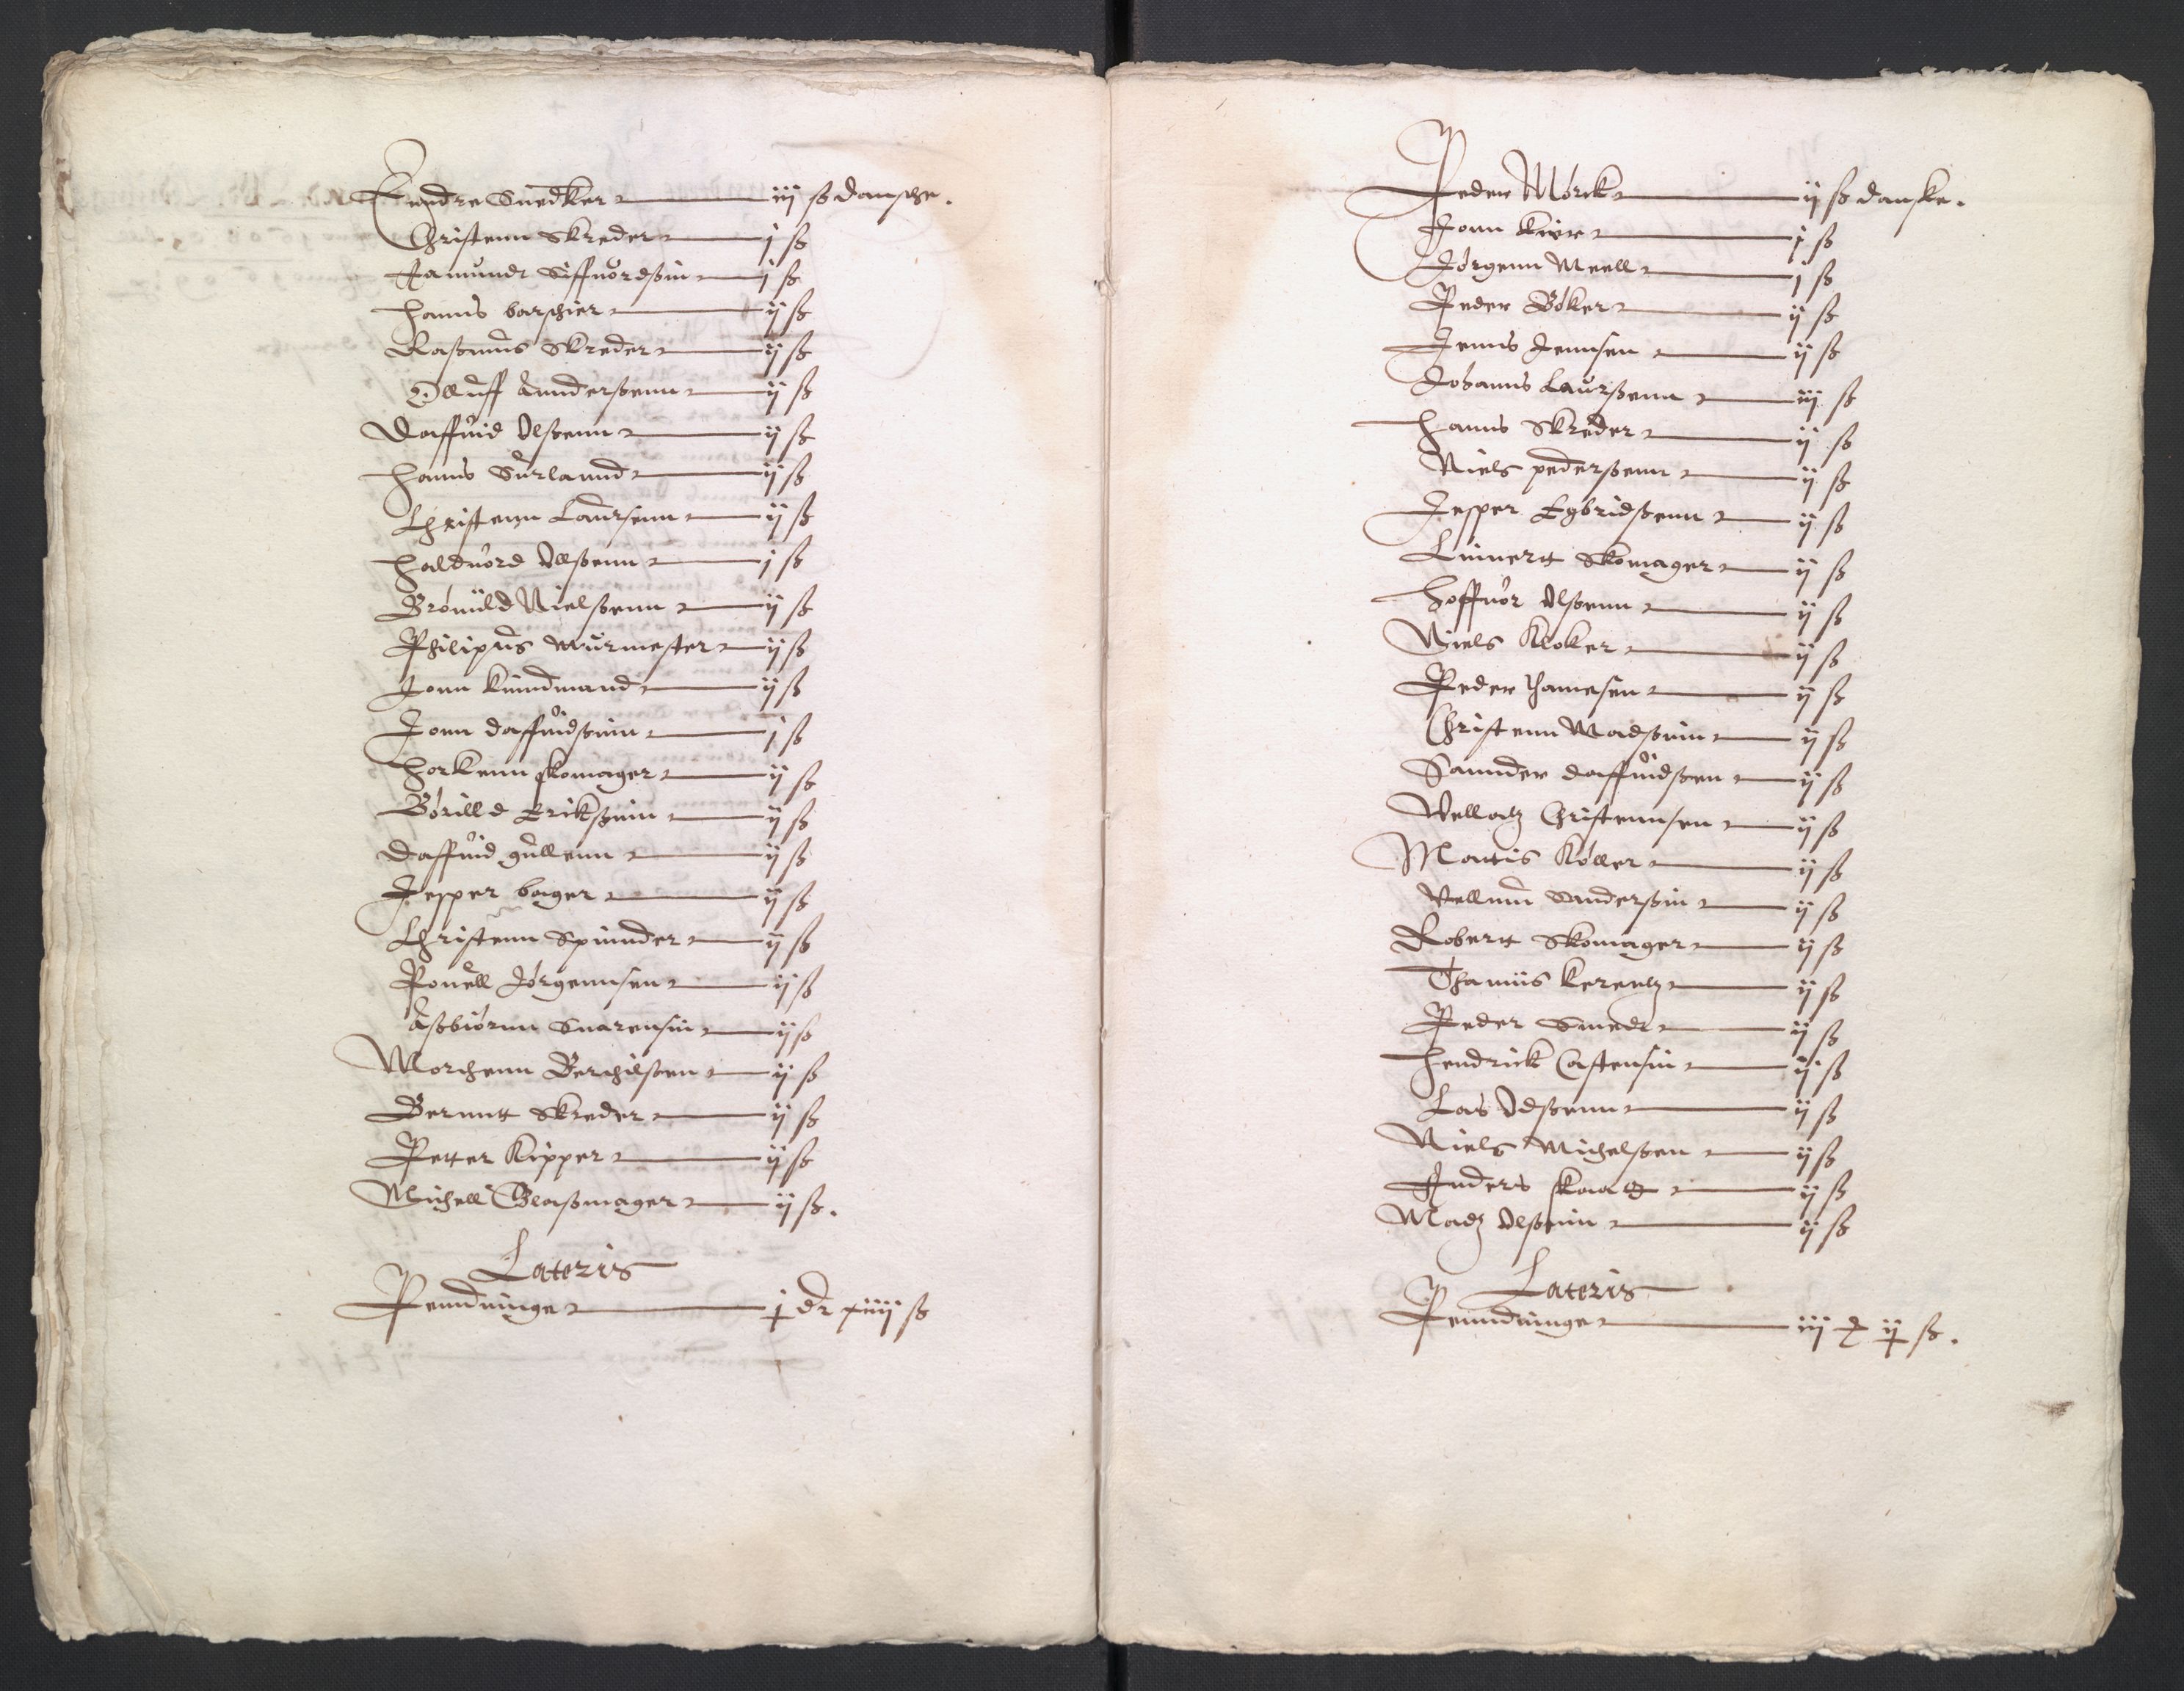 Enndre Snedker — iij ß danske.
Christenn Skreder — j ß
Jamundt Siffuordsøn — j ß
Hanns barschier — ij ß
Rasmus Skreder — ij ß
Olluff Anndersenn — ij ß
Daffuid Olsenn — ij ß
Hanns Surlannd — ij ß
Christenn Laursenn — ij ß
Haluord Olsenn — j ß
Brónuld Nielsenn — ij ß
Philipus Murmester — ij ß
Jonn — ij ß
Jonn Daffuidsenn — j ß
Torkenn skomager — ij ß
Bórilld Erikssenn — ij ß
Daffuid gullenn — ij ß
Jesper bager — ij ß
Christenn Spinnder — ij ß
Pouell Jórgennsen — ij ß
Asbiórnn — ij ß
Morthenn Berthilsen — ij ß
Berentt Skreder — ij ß
Petter Kipper — ij ß
Michell Glasmager — ij ß.
Lateris
Penndninge — j dr xiiij ß
Peder Mórck — ij ß danske.
Jonn — j ß
Jórgenn Mell — j ß
Peder Bóker — ij ß
Jenns Jennsen — ij ß
Johanns Laursenn — iij ß
Hanns Skreder — ij ß
Niels pedersenn — ij ß
Jesper Egbridsenn — ij ß
Linnertt Skomager — ij ß
Hoffuor Olsenn — ij ß
Niels Kloker — ij ß
Peder Hannsen — ij ß
Christenn Madsenn — ij ß
Sannder Daffuidsen — ij ß
Vellatz Christennsen — ij ß
Mattis Kóller — ij ß
Vellum Sandersen — ij ß
Robertt Skomager — ij ß
Thamis — ij ß
Peder Smedt — ij ß
Hendrick Castensen — ij ß
Las Olsenn — ij ß
Niels Michelsen — ij ß
Anders — ij ß
Madz Olsenn — ij ß
Lateris
Penndninge — iij d ij ß.